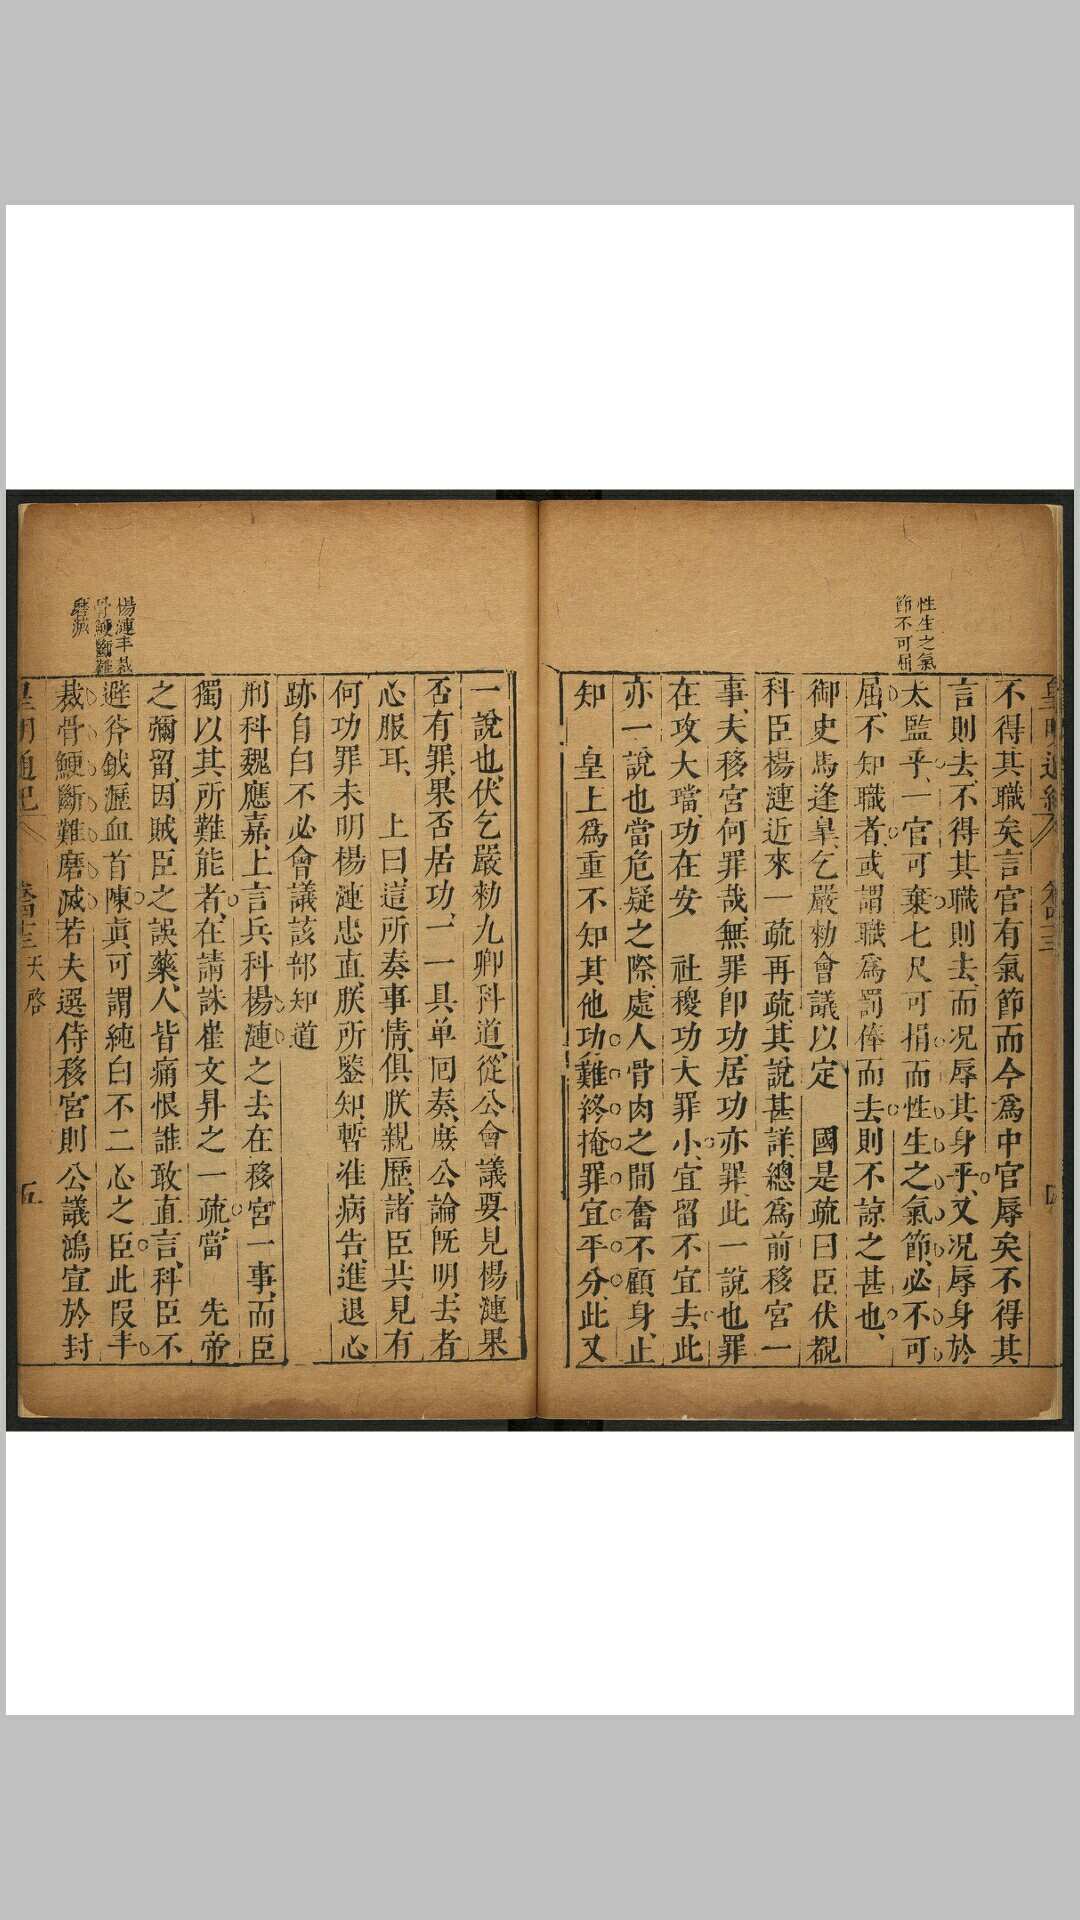 性生之氣
節不可屈
不得其職矣言官有氣節而今爲中官辱矣不得其
言則去不得其職則去而况辱其身乎又况辱身於
太監乎一官可棄七尺可捐而性生之氣節必不可
屈不知職者或謂職爲罰俸而去則不諒之甚也
御史馬逢臯乞嚴勑會議以定 國是疏曰臣伏覩
科臣楊漣近來一疏再疏其說甚詳總爲前移宮一
事夫移宮何罪哉無罪卽功居功亦罪此一說也罪
在攻大璫功在安 社稷功大罪小宜留不宜去此
亦一說也當危疑之際處人骨肉之間奮不顧身止
知 皇上爲重不知其他功難終掩罪宜平分此又
一說也伏乞嚴勑九卿科道從公會議要見楊漣果
否有罪果否居功一一具单回奏庶公論旣明去者
心服耳 上曰這所奏事情俱朕親歷諸臣共見有
何功罪未明楊漣忠直朕所鑒知暫准病告進退心
跡自白不必會議該部知道
刑科魏應嘉上言兵科楊漣之去在移宮一事而臣
獨以其所難能者在請誅崔文昇之一疏當 先帝
之彌留因賊臣之誤藥人皆痛恨誰敢直言科臣不
避斧鉞瀝血首陳眞可謂純白不二心之臣此叚丰
裁骨鯁斷難磨滅若夫選侍移宮則公議鴻宣於封
楊漣丰裁
骨鯁斷難
磨滅
皇明通紀
卷四十三 天啓
五